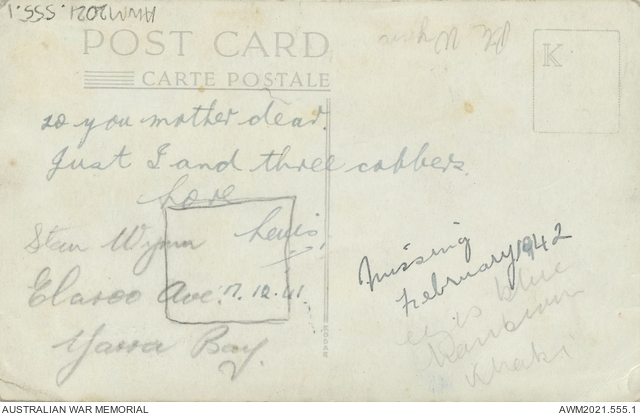 AWM2021.555.1
POST CARD
CARTE POSTALE
K
to you mother dear.
Just I and three cobbers.
Love
Lewis
Stan Wynn
Elaroo Ave. 7.12.41
Yarra Bay.
missing
February 1942
eyes blue
Khaki
KODAK
AUSTRALIAN WAR MEMORIAL
AWM2021.555.1